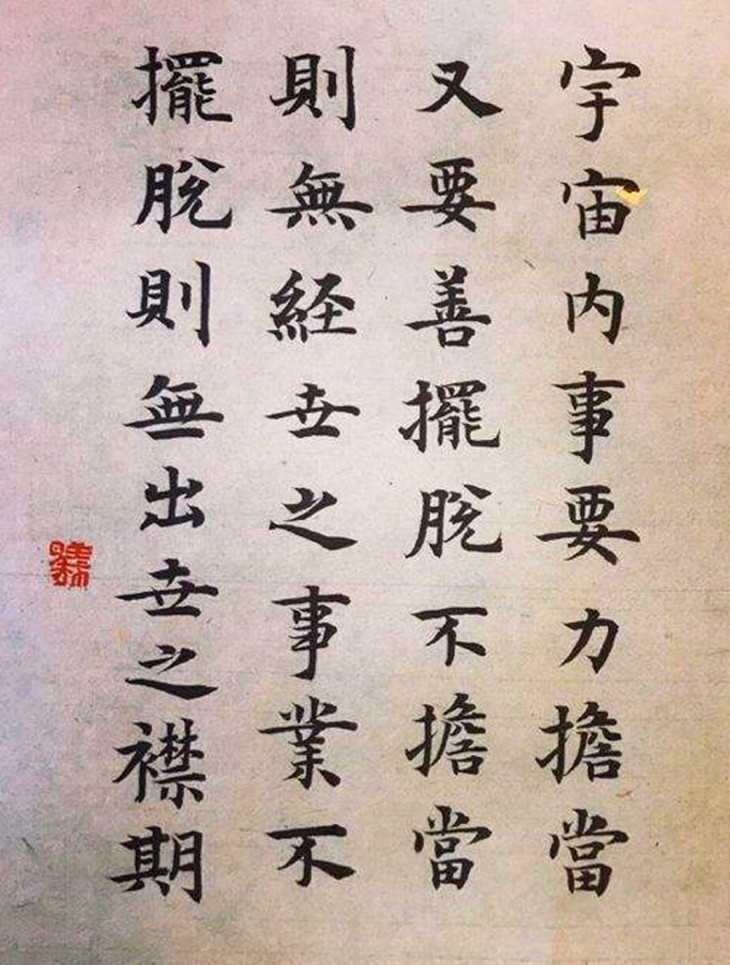 宇宙内事要力擔當
又要善擺脫不擔當
則無経世之事業不
擺脫則無出世之襟期